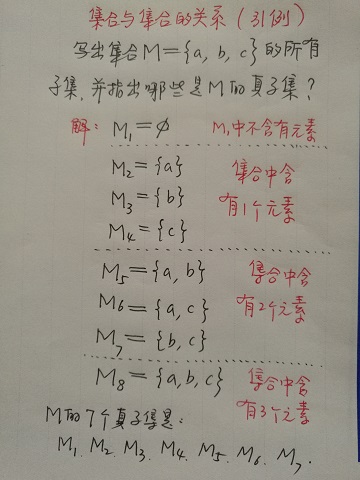 集合与集合的关系(引例)
写出集合M={a, b, c}的所有
子集,并指出哪些是M的真子集?
解: M₁=∅ M₁中不含有元素
M₂={a} 集合中含
M₃={b} 有1个元素
M₄={c}
M₅={a, b} 集合中含
M₆={a, c} 有2个元素
M₇={b, c}
M₈={a, b, c} 集合中含
有3个元素
M的7个真子集是:
M₁、M₂、M₃、M₄、M₅、M₆、M₇.